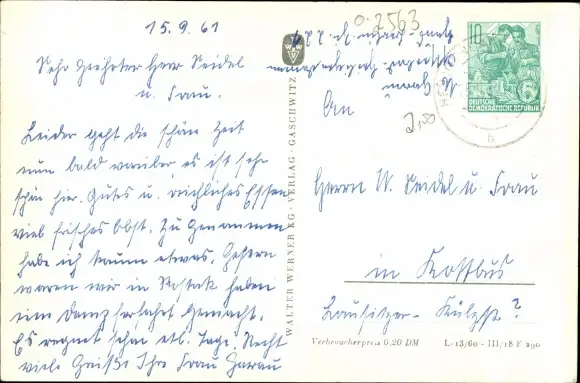 15.9.61
Sehr Geehrter Herr Seidel
u. Frau.
Leider geht die schöne Zeit
nun bald vorüber es ist sehr
schön hier. Gutes u. reichliches Essen
viel frisches Obst. Zu Genommen
habe ich kaum etwas. Gestern
waren wir in Rostock haben
eine Dampferfahrt gemacht.
Es regnet schon etl. Tage. Recht
viele Grüße Ihre Frau
WALTER WERNER KG · VERLAG · GASCHWITZ
WW
0.2563
10
DEUTSCHE
DEMOKRATISCHE REPUBLIK
An
2,00
b
Herrn W. Seidel u. Frau
in Kottbus
Lausitzer- Külzstr?
Verbraucherpreis 0,20 DM
L-13/60 - III/18 F 290